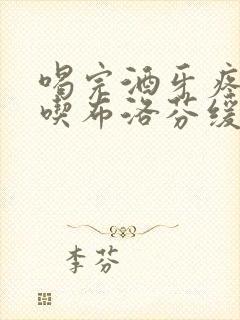 喝完酒牙疼
喫布洛芬缓
李芬